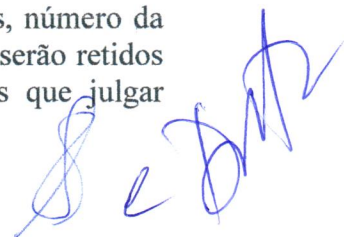 s, número da
serão retidos
s que julgar